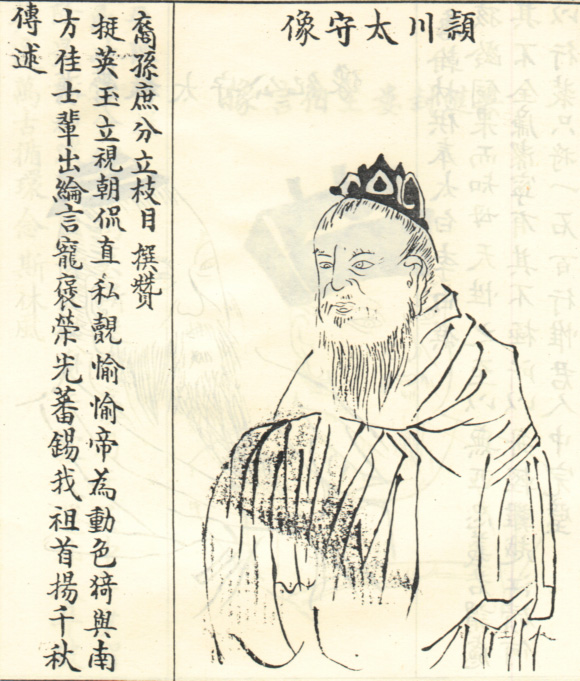 潁川太守像
裔孫庶分立枝目 撰贊
挺英玉立視朝侃直私覿愉愉帝為動色猗與南
方佳士輩出綸言寵褒榮光蕃錫我祖首揚千秋
傳述